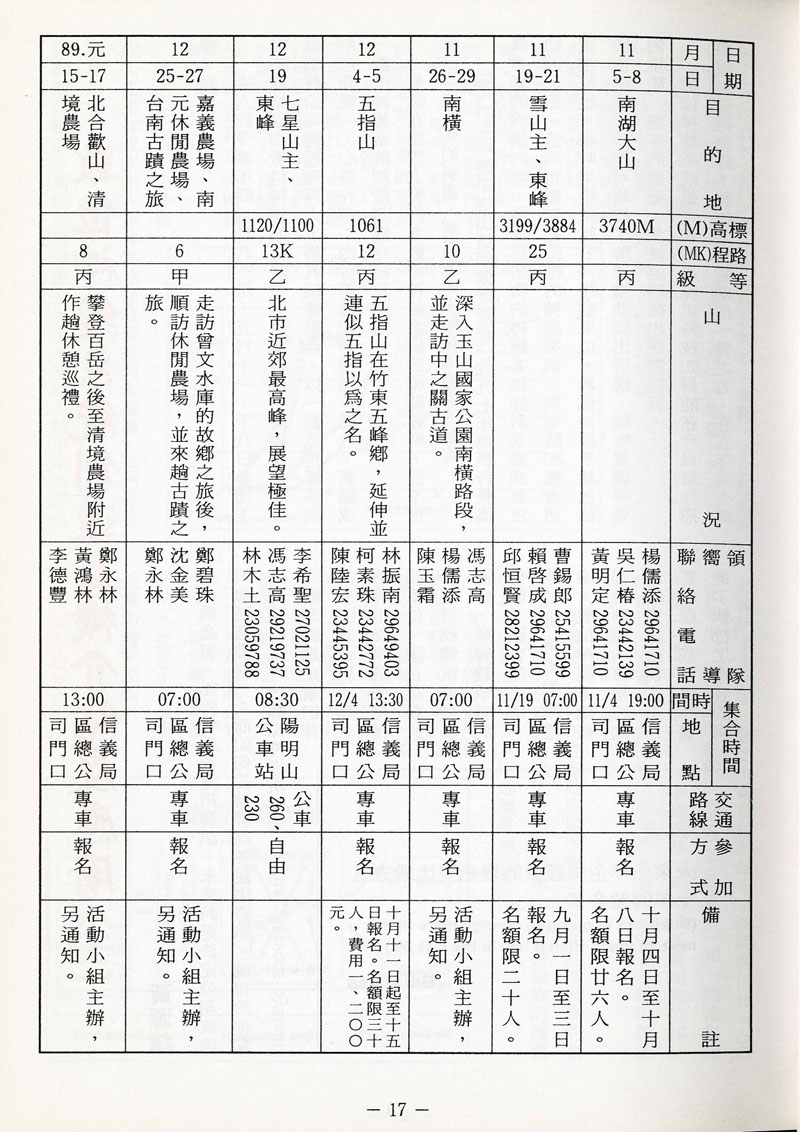 日期 月 日
目的地
標高(M)
路程(MK)
等級
山況
領隊嚮導聯絡電話
集合時間 時間
地點
交通路線
參加方式
備註
11
5-8
南湖大山
3740M
丙
楊儒添 29641710
吳仁椿 23442139
黃明定 29641710
11/4 19:00
信義局
區總公
司門口
專車
報名
十月四日至十月
八日報名。
名額限廿六人。
11
19-21
雪山主、東峰
3199/3884
25
丙
曹錫郎 25415599
賴啓成 29641710
邱恒賢 28212399
11/19 07:00
信義局
區總公
司門口
專車
報名
九月一日至三日
報名。
名額限二十人。
11
26-29
南橫
10
乙
深入玉山國家公園南橫路段，
並走訪中之關古道。
馮志高
楊儒添
陳玉霜
07:00
信義局
區總公
司門口
專車
報名
活動小組主辦，
另通知。
12
4-5
五指山
1061
12
丙
五指山在竹東五峰鄉，延伸並
連似五指以爲之名。
林振南 29649403
柯素珠 23442772
陳陸宏 23445395
12/4 13:30
信義局
區總公
司門口
專車
報名
十月十一日起至十五
日報名。名額限三十
人，費用一、二〇〇
元。
12
19
七星山主、
東峰
1120/1100
13K
乙
北市近郊最高峰，展望極佳。
李希聖 27021125
馮志高 29219737
林木土 23059788
08:30
陽明山
公車站
公車
260、
230
自由
12
25-27
嘉義農場、南
元休閒農場、
台南古蹟之旅
6
甲
走訪曾文水庫的故鄉之旅後，
順訪休閒農場，並來趟古蹟之
旅。
鄭碧珠
沈金美
鄭永林
07:00
信義局
區總公
司門口
專車
報名
活動小組主辦，
另通知。
89.元
15-17
北合歡山、清
境農場
8
丙
攀登百岳之後至清境農場附近
作趟休憩巡禮。
鄭永林
黃鴻林
李德豐
13:00
信義局
區總公
司門口
專車
報名
活動小組主辦，
另通知。
— 17 —